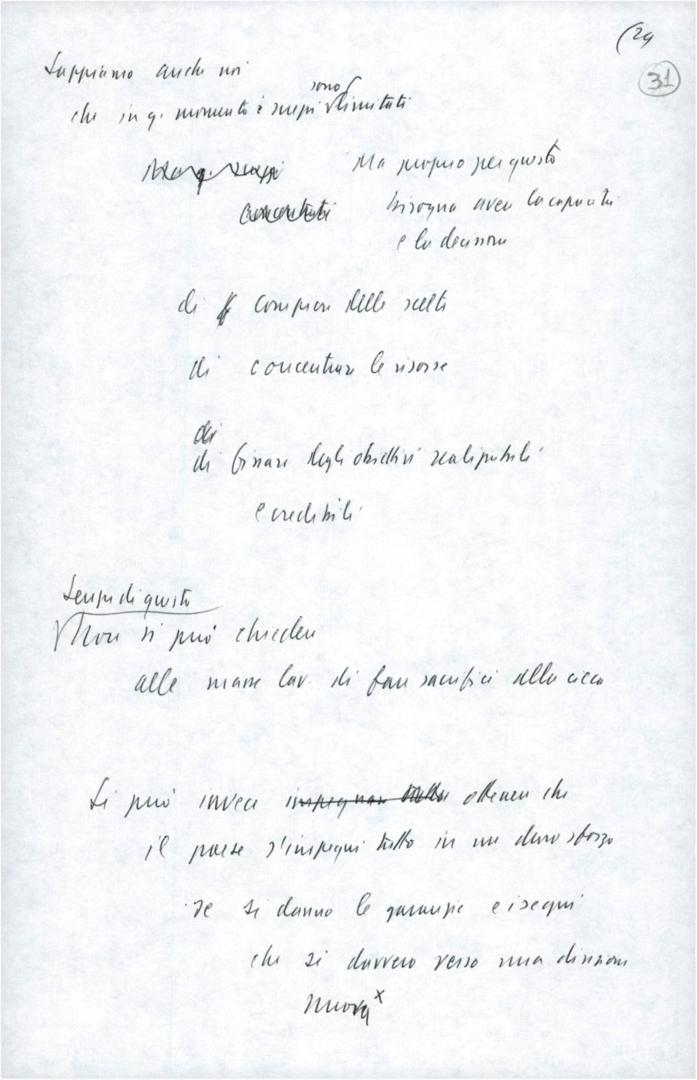 (24
31
Sappiamo anche noi
sono
che in q. momento i mezzi limitati
Ma q. mezzi Ma proprio per questo
concentrati bisogna avere la capacità
e la decisione
di compiere delle scelte
di concentrare le risorse
di
di fissare degli obiettivi realizzabili
e credibili
Senza di questo
Non si può chiedere
alle masse lav. di fare sacrifici alla cieca
Si può invece impegnare tutto ottenere che
il paese s'impegni tutto in un duro sforzo
se si danno le garanzie e i segni
che si davvero verso una direzione
nuova x